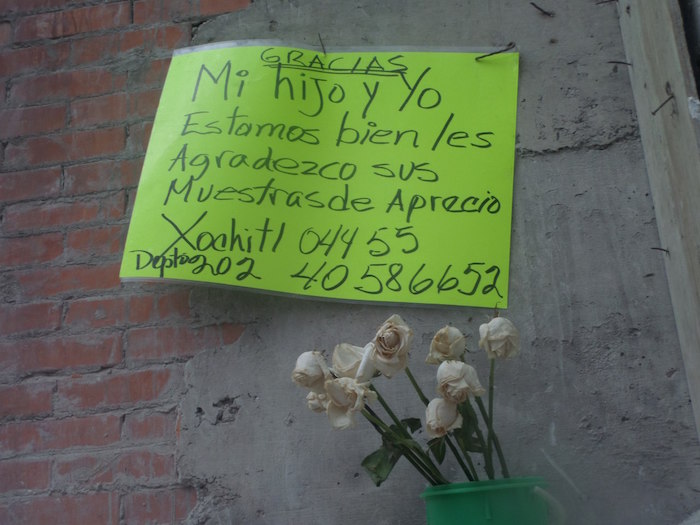 GRACIAS
Mi hijo y Yo
Estamos bien les
Agradezco sus
Muestras de Aprecio
Xochitl 044 55
Depto 202 40 586652